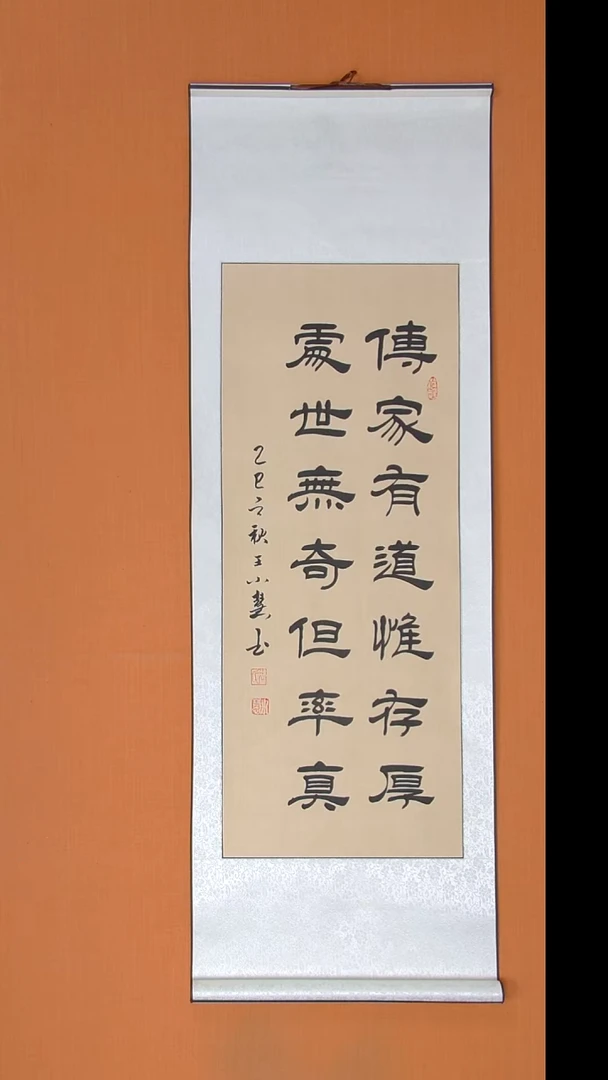 傳家有道惟存厚
處世無奇但率真
乙巳之秋王小龑書